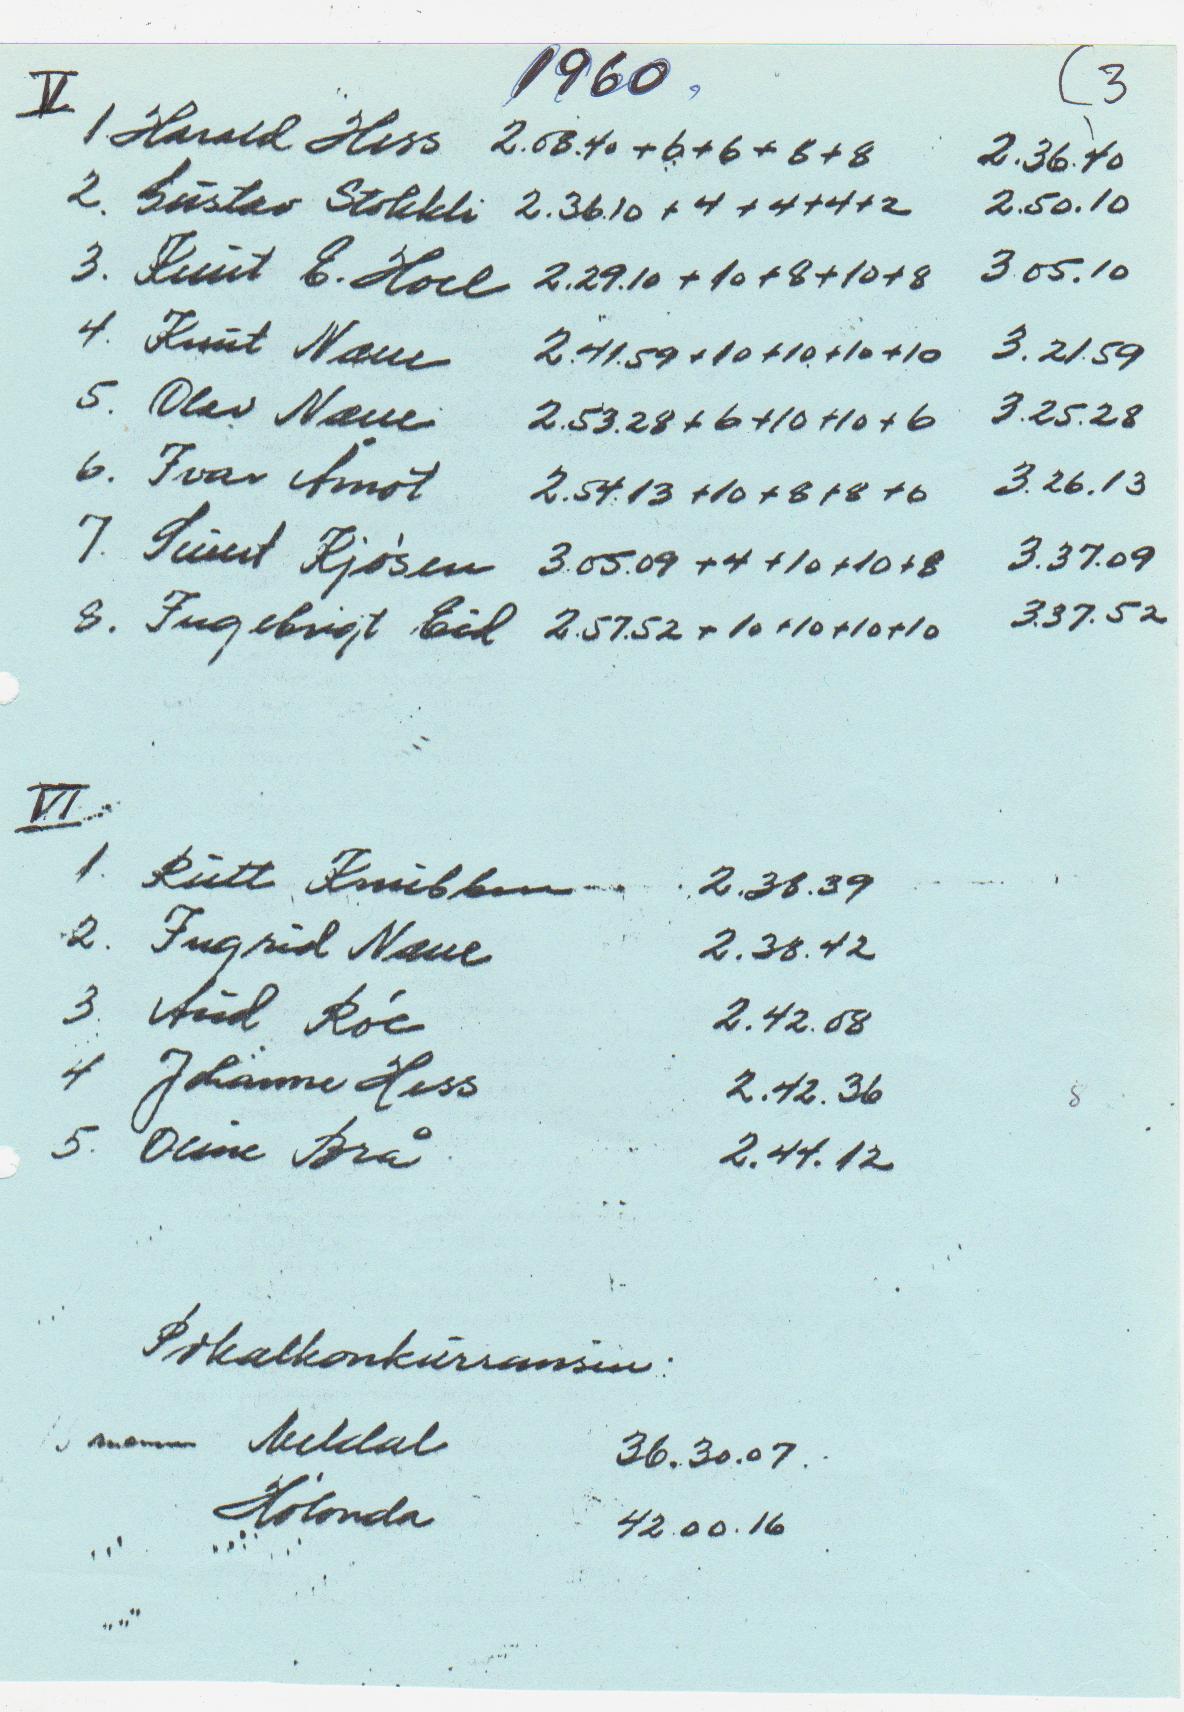 1960. (3
V
1 Harald Hess 2.08.40 + 6 + 6 + 8 + 8 2.36.40
2. Gustav Stokkli 2.36.10 + 4 + 4 + 4 + 2 2.50.10
3. Knut E. Hoel 2.29.10 + 10 + 8 + 10 + 8 3.05.10
4. Knut Næve 2.41.59 + 10 + 10 + 10 + 10 3.21.59
5. Olav Næve 2.53.28 + 6 + 10 + 10 + 6 3.25.28
6. Ivar Åmot 2.54.13 + 10 + 8 + 8 + 6 3.26.13
7. Sivert Kjøsen 3.05.09 + 4 + 10 + 10 + 8 3.37.09
8. Ingebrigt Eid 2.57.52 + 10 + 10 + 10 + 10 3.37.52
VI
1. Rutt 2.38.39
2. Ingrid Næve 2.38.42
3. Aud Róe 2.42.08
4 Johanne Hess 2.42.36
8
5. Oline Brå 2.44.12
Pokalkonkurransen:
Meldal 36.30.07.
Hølonda 42.00.16